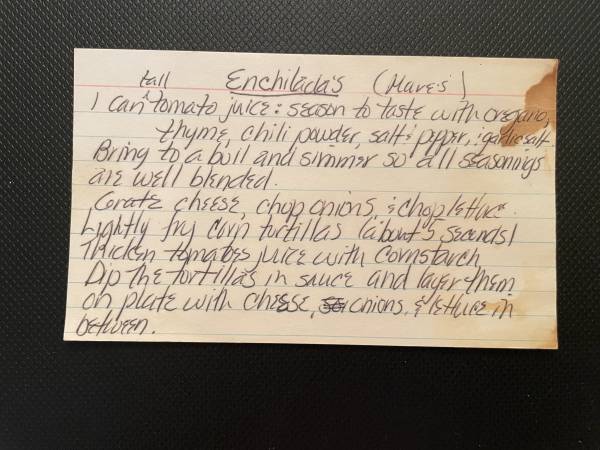 Enchilada's (Mares)
1 can tall tomato juice: season to taste with oregano,
thyme, chili powder, salt & pepper, & garlic salt.
Bring to a boil and simmer so all seasonings
are well blended.
Grate cheese, chop onions, & chop lettuce.
Lightly fry corn tortillas (about 5 seconds)
Thicken tomatoes juice with cornstarch
Dip the tortillas in sauce and layer them
on plate with cheese, onions, & lettuce in
between.